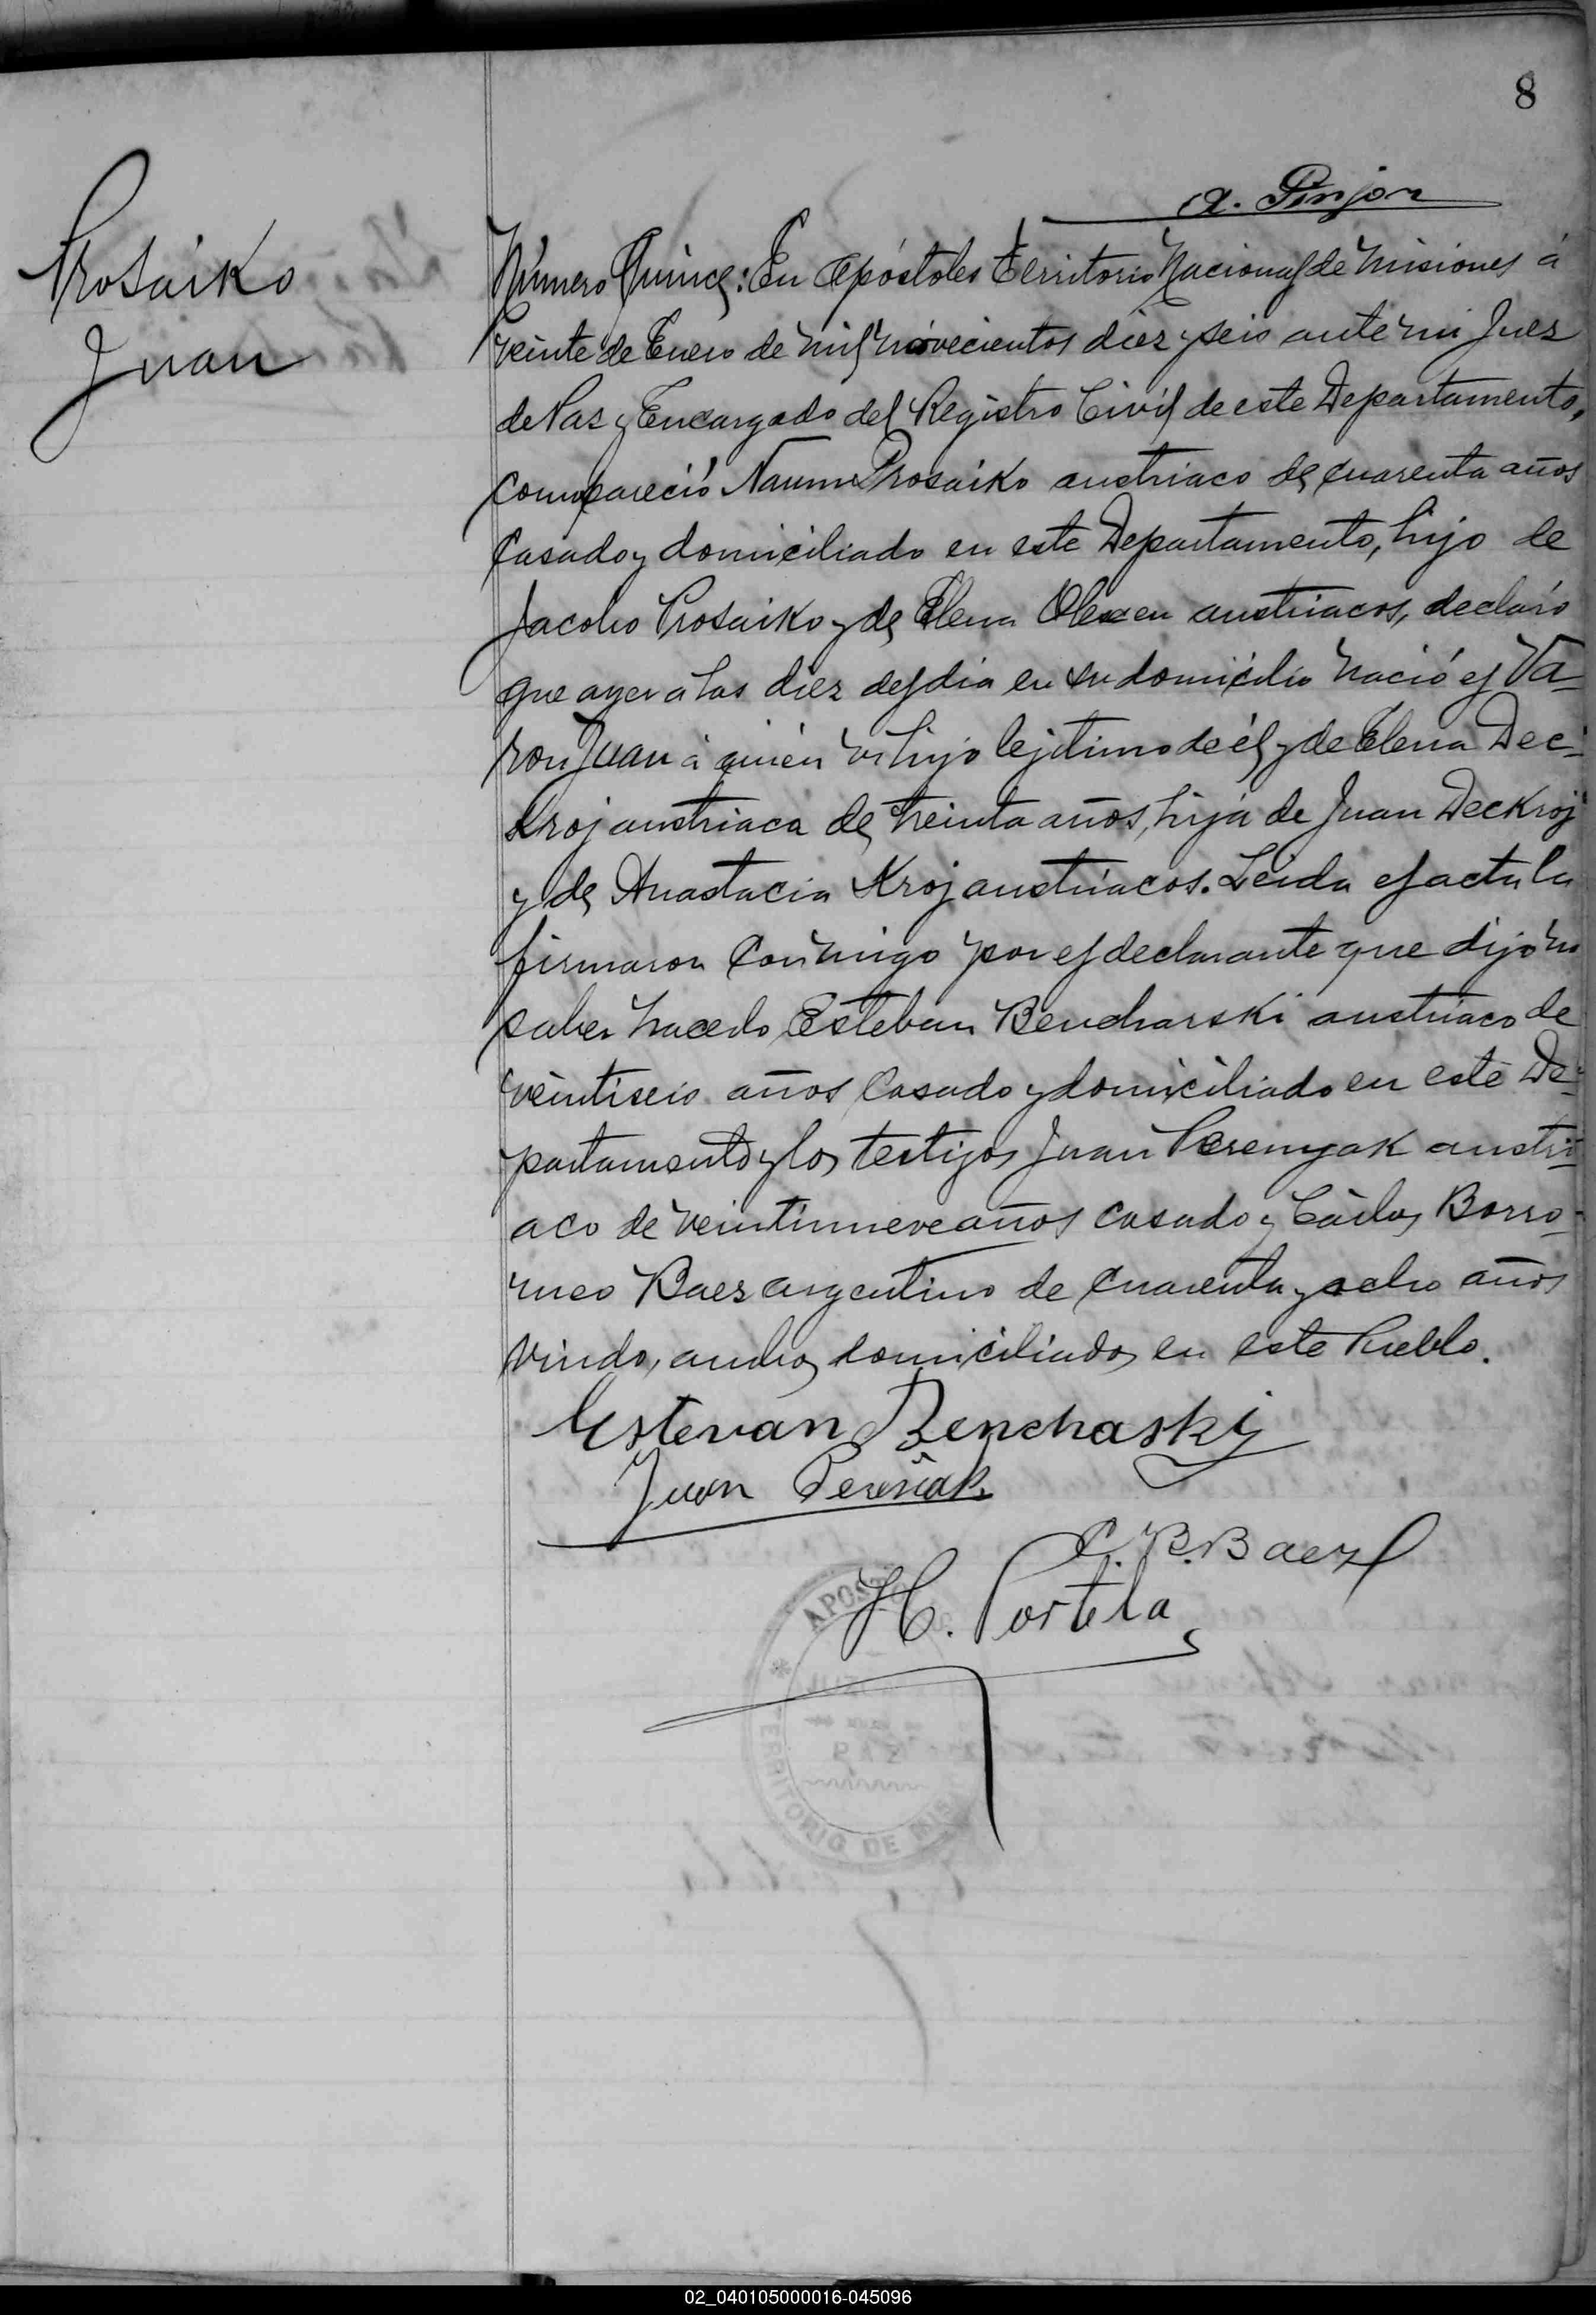 8
A. Pinjon
Prosaiko
Juan
Número Quince: En Apóstoles Territorio Nacional de Misiones á
veinte de Enero de mil novecientos diez y seis ante mi Juez
de Paz y Encargado del Registro Civil de este Departamento,
compareció Naum Prosaiko austriaco de cuarenta años
casado y domiciliado en este Departamento, hijo de
Jacobo Prosaiko y de Elena Olexen austriacos, declaró
que ayer a las diez del dia en su domicilio nació el Va=
ron Juan á quién vi hijo lejitimo de él y de Elena Dec=
kroj austriaca de treinta años, hija de Juan Deckroj
y de Anastacia Kroj austriacos. Leida el acta la
firmaron conmigo por el declarante que dijo no
saber hacerlo Esteban Bencharski austriaco de
veintiseis años casado y domiciliado en este De=
partamento y los testigos Juan Peremyak austri=
aco de veintinueve años casado y Cárlos Borro=
meo Baez argentino de cuarenta y ocho años
viudo, ambos domiciliados en este Pueblo.
Estevan Benchaski
Juan Pereñak
C. B. Baez
H. Portela
APOST
TERRITORIO DE MIS
02_040105000016-045096